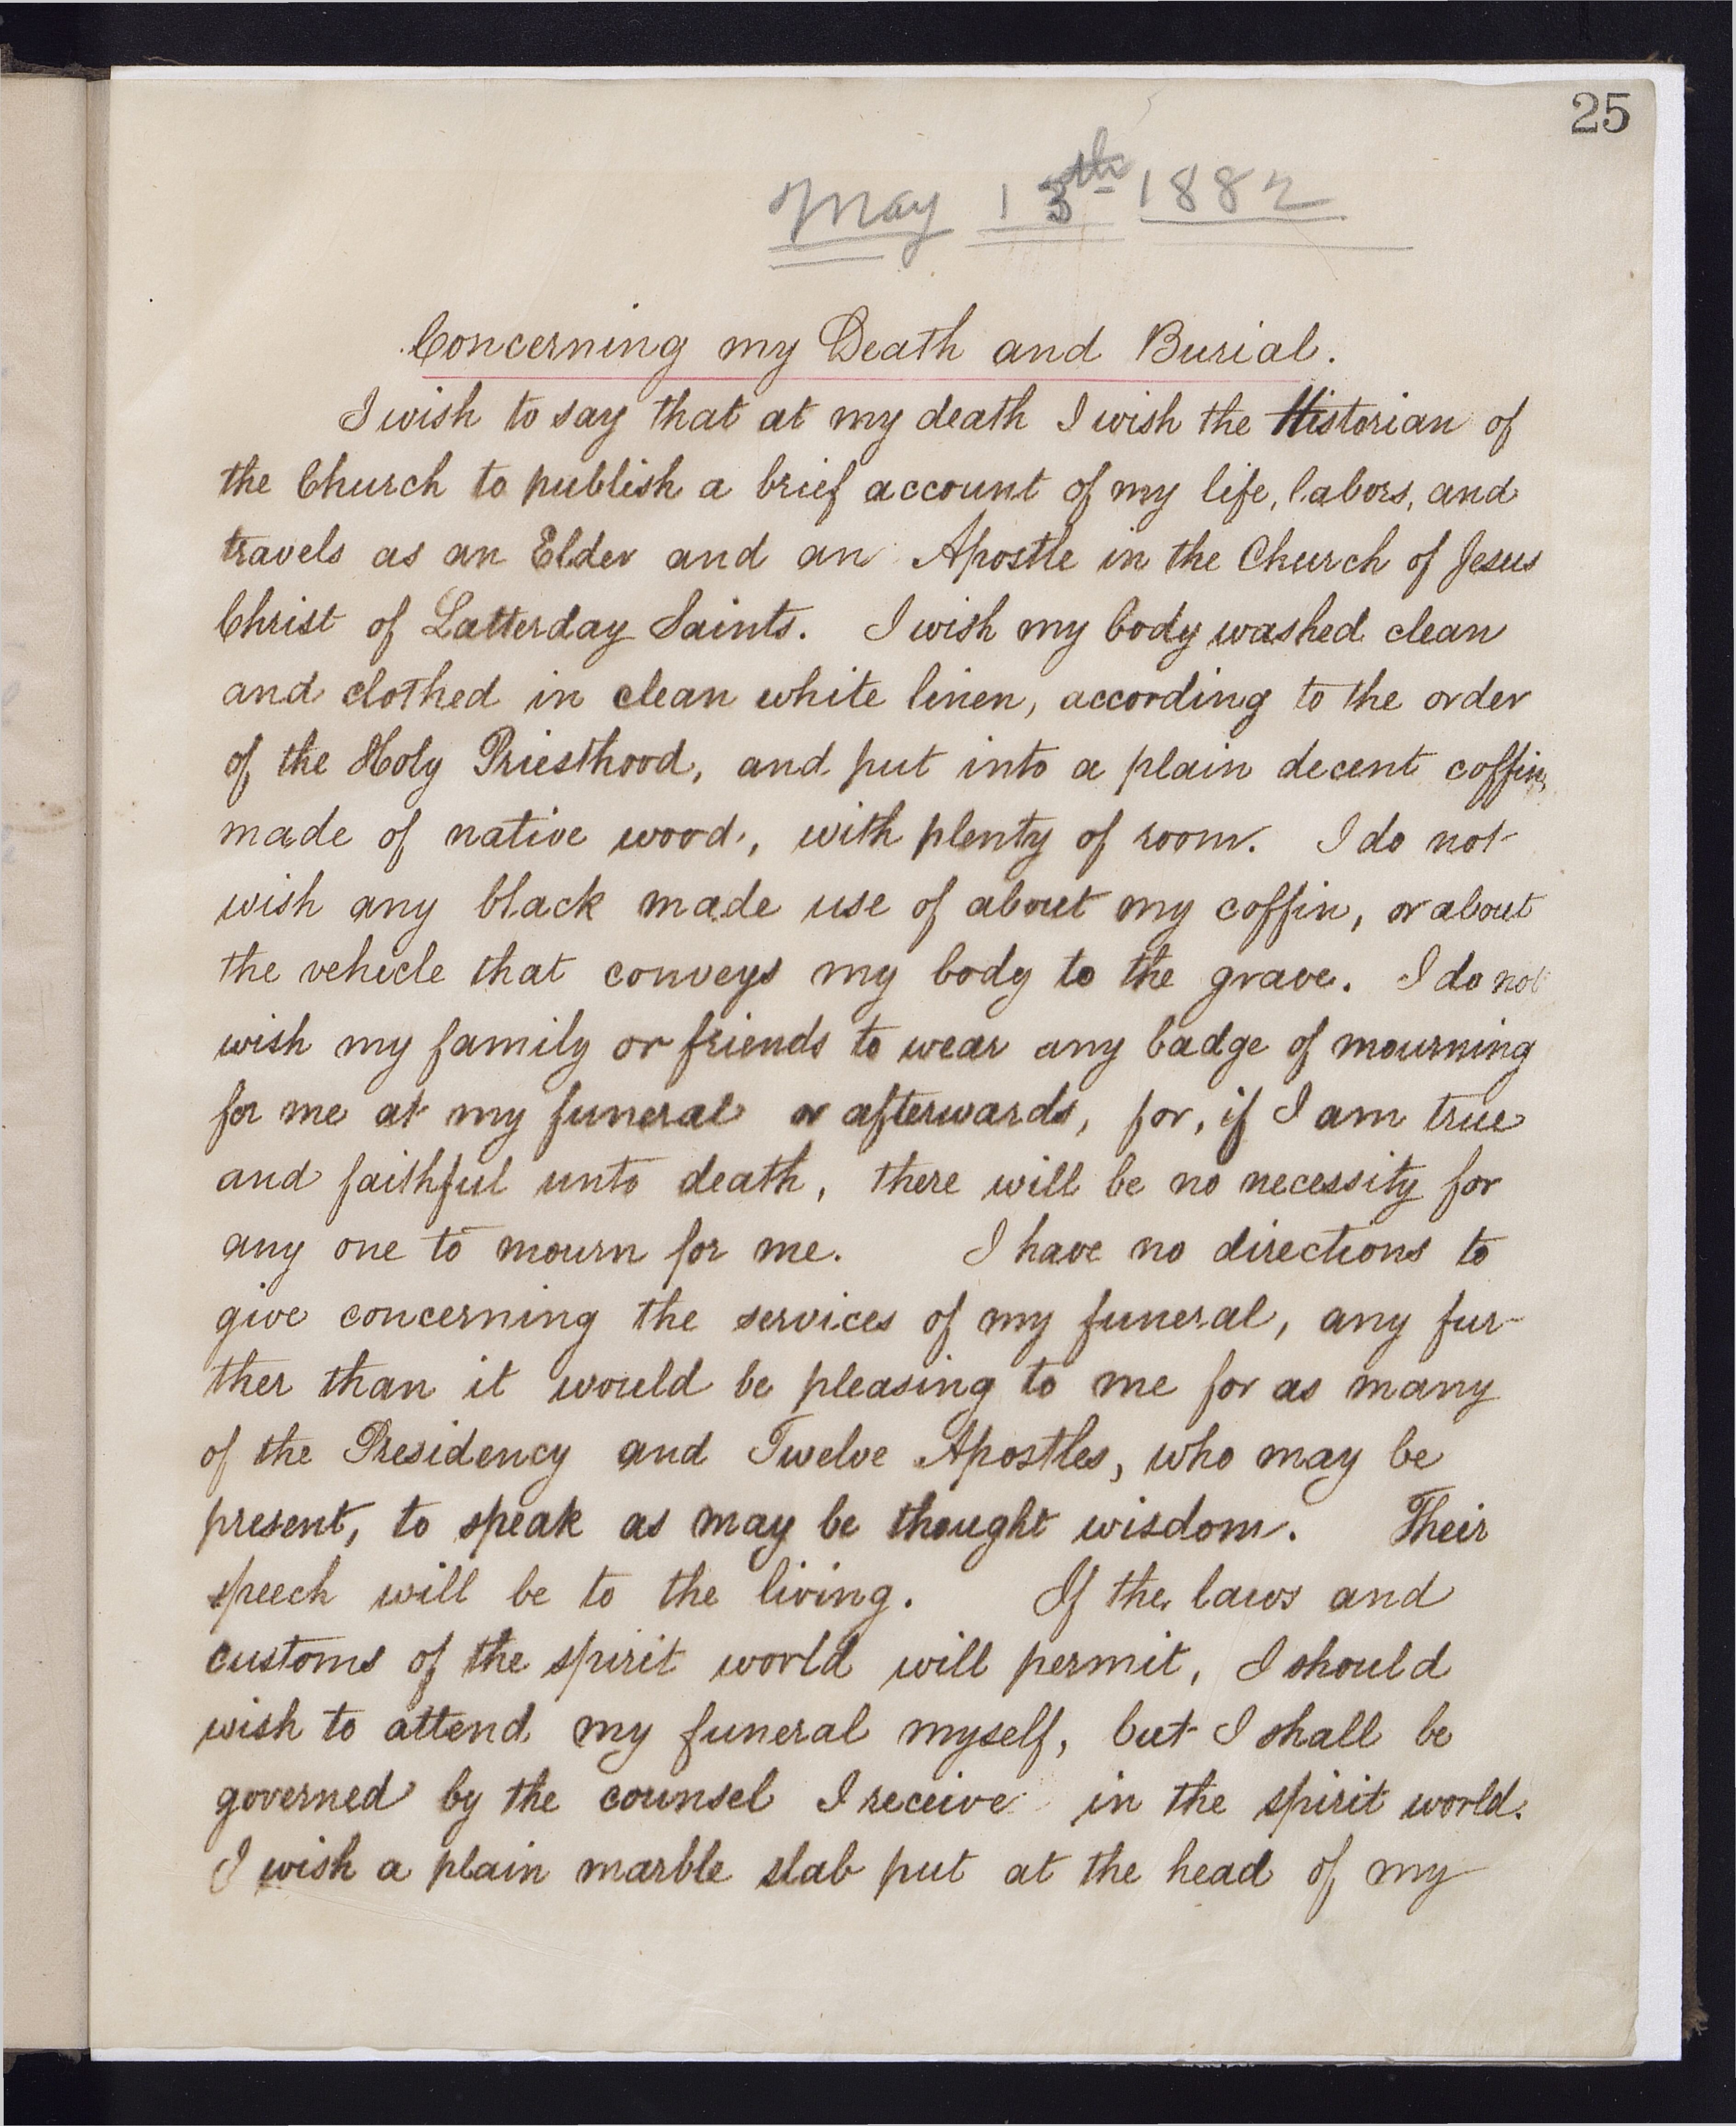 25
May 13th 1882
Concerning my Death and Burial.
I wish to say that at my death I wish the Historian of
the Church to publish a brief account of my life, labors, and
travels as an Elder and an Apostle in the Church of Jesus
Christ of Latterday Saints. I wish my body washed clean
and clothed in clean white linen, according to the order
of the Holy Priesthood, and put into a plain decent coffin,
made of native wood, with plenty of room. I do not
wish any black made use of about my coffin, or about
the vehicle that conveys my body to the grave. I do not
wish my family or friends to wear any badge of mourning
for me at my funeral or afterwards, for, if I am true
and faithful unto death, there will be no necessity for
any one to mourn for me. I have no directions to
give concerning the services of my funeral, any fur-
ther than it would be pleasing to me for as many
of the Presidency and Twelve Apostles, who may be
present, to speak as may be thought wisdom. Their
speech will be to the living. If the laws and
customs of the spirit world will permit, I should
wish to attend my funeral myself, but I shall be
governed by the counsel I receive in the spirit world.
I wish a plain marble slab put at the head of my